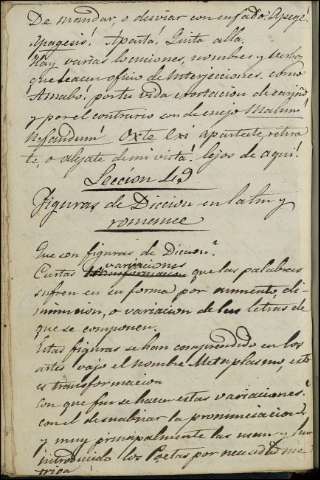 De mandar, o desviar con enfado: Apage!
Apagesis! Aparta! Quita alla,
Hay varias locuciones, nombres y verbos
que hacen oficio de Interjecciones. como
Amabó! por tu vida exortacion de cariño
y por el contrario son de enojo Malum!
Nefandum! Oxte Exi apartate, retira
te, o alejate de mi vista! lejos de aqui!
Seccion 4ª
Figuras de Diccion en latin y
romance
Que son figuras de Diccion?
Ciertas variaciones que las palabras
sufren en su forma por aumento, di
minucion, o variacion de las letras de
que se componen.
Estas figuras se han comprendido en los
artes vajo el nombre Metaplasmo, esto
es transformacion
Con que fin se hacen estas variaciones?
con el de suabizar la pronunciacion,
y muy principalmente las usan y han
introducido los Poetas por necesidad me
trica